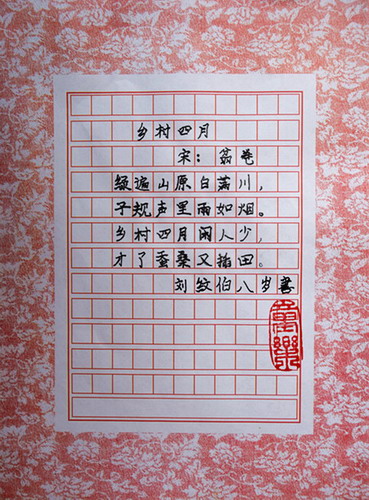 乡村四月
宋：翁卷
绿遍山原白满川，
子规声里雨如烟。
乡村四月闲人少，
才了蚕桑又插田。
刘纹伯八岁书